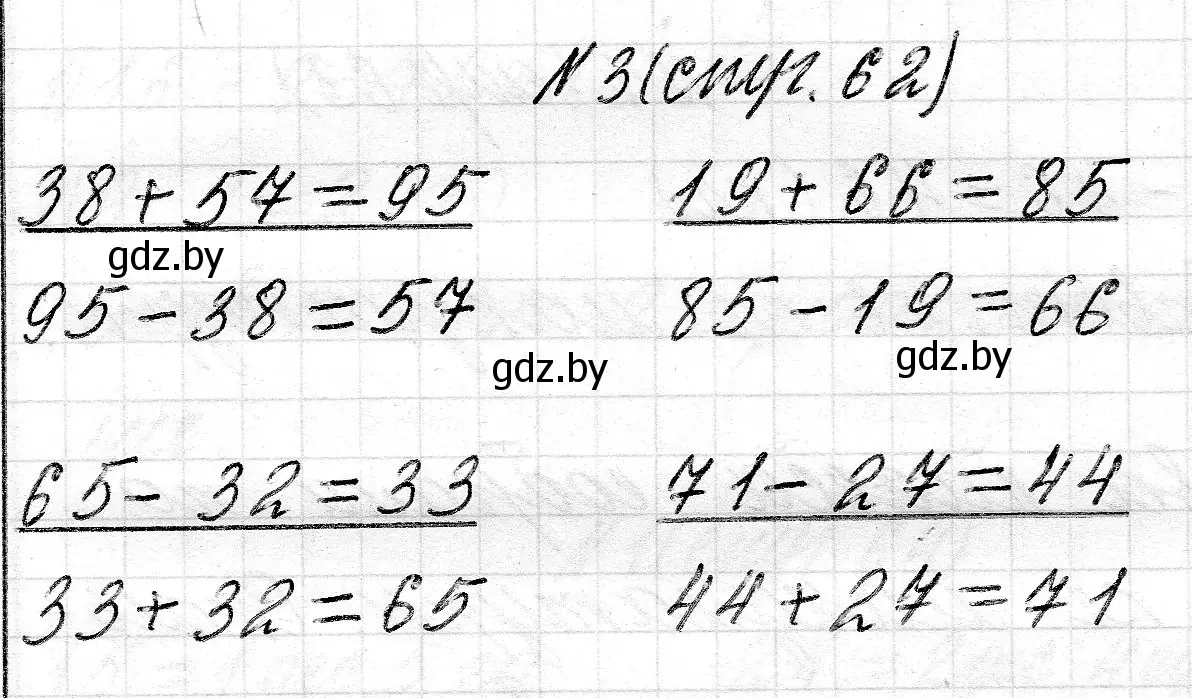 N 3 (стр. 62)
38 + 57 = 95 19 + 66 = 85
gdz.by
95 - 38 = 57 85 - 19 = 66
gdz.by gdz.by
65 - 32 = 33 71 - 27 = 44
33 + 32 = 65 44 + 27 = 71